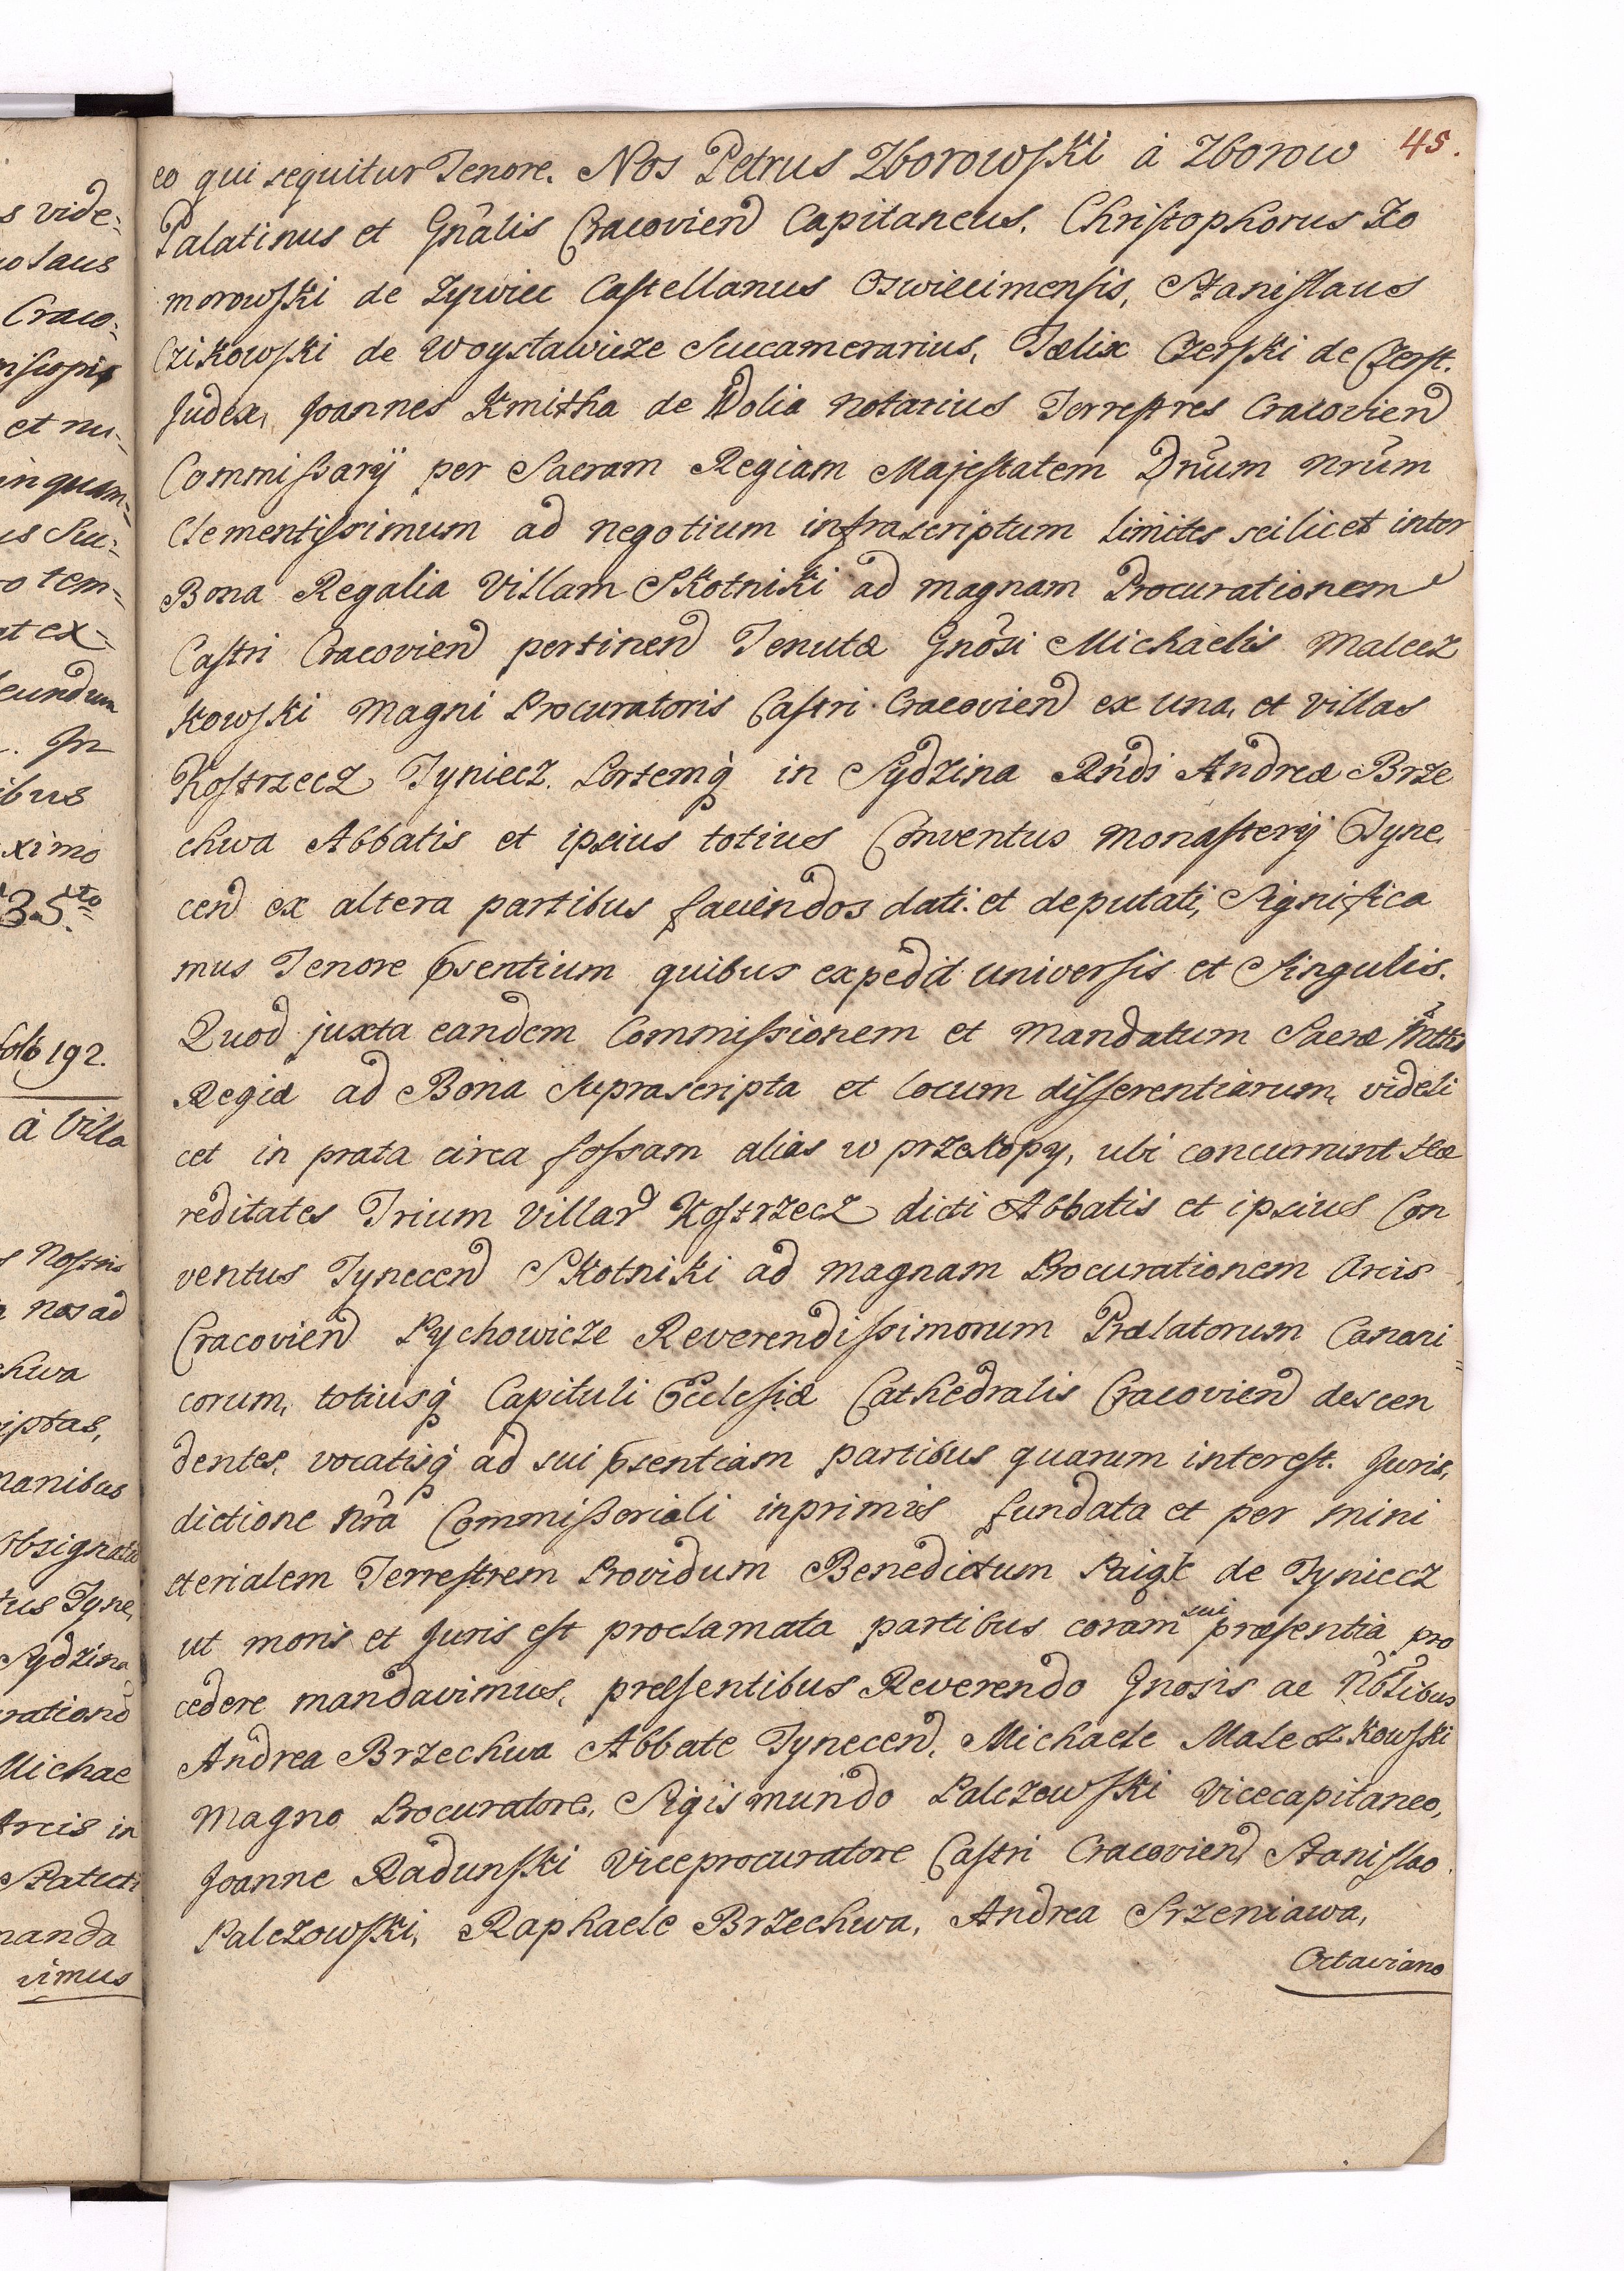 45.
eo qui sequitur Tenore. Nos Petrus Zborowski à Zborow
Palatinus et Gnãlis Cracovien Capitaneus. Christophorus Ko
morowski de Zywiec Castellanus Oswiecimensis, Stanislaus
Czikowski de Woystawicze Succamerarius, Fælix Czerski de Czerst.
Judex, Joannes Kmitha de Wolia Notarius Terrestres Cracovien
Commissarij per Sacram Regiam Majestatem Dnũm nrũm
Clementissimum ad negotium infrascriptum limites scilicet inter
Bona Regalia Villam Skotniki ad magnam Procurationem
Castri Cracovien pertinen Tenutæ Gnõsi Michaelis Malecz
kowski Magni Procuratoris Castri Cracovien ex una, et Villas
Kostrzecz Tyniecz. Sortemq́ in Sydzina Rndi Andreæ Brze
chwa Abbatis et ipsius totius Conventus Monasterij Tyne,
cen ex altera partibus faciendos dati et deputati, Significa
mus Tenore p̃sentium quibus expedit universis et Singulis.
Quod juxta eandem Commissionem et Mandatum Sacræ Mttis
Regiæ ad Bona Suprascripta et locum differentiarum, videli
cet in prata circa fossam alias w przekopy, ubi concurrunt Hæ
reditates Trium Villar Kostrzecz dicti Abbatis et ipsius Con
ventus Tynecen Skotniki ad magnam Procurationem Arcis
Cracovien Pychowicze Reverendissimorum Prælatorum Canoni=
corum, totiusq́ Capituli Ecclesiæ Cathedralis Cracovien descen
dentes, vocatisq́ ad sui p̃sentiam partibus quarum interest. Juris,
dictione nrã Commissoriali inprimis fundata et per mini
sterialem Terrestrem Providum Benedictum de Tyniecz
ut moris et Juris est proclamata partibus coram sui præsentia pro
cedere mandavimus, præsentibus Reverendo Gnosis ac Nobilibus
Andrea Brzechwa Abbate Tynecen, Michaele Maleczkowski
Magno Procuratore, Sigismundo Palczowski Vicecapitaneo,
Joanne Radunski Viceprocuratore Castri Cracovien Stanislao
Palczowski, Raphaele Brzechwa, Andrea Srzeniawa,
Octaviano
s vide=
Craco=
et nu=
in quam=
o tem=
at ex=
cundum
. In
ibus
ximo
folio 192.
à Villa
s Nostris
nos ad
chwa
iptas,
manibus
obsignata
tus Tyne,
Sydzina
Michae
Arcis in
manda
vimus